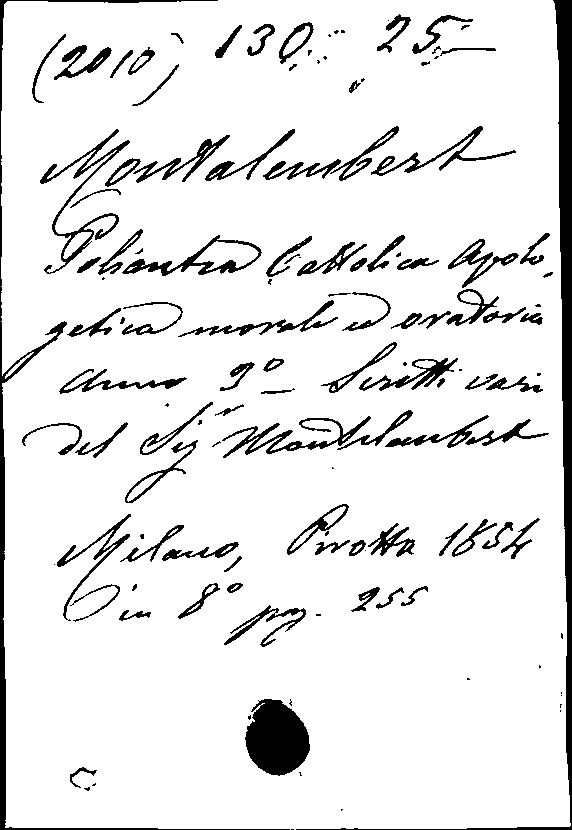 (2010) 130. 25
Montalembert
Poliantea Cattolica Apolo-
getica morale ed oratoria
Anno 3º - Scritti vari
del Sigr Montelambert
Milano, Pirotta 1854
in 8º pag. 255
C